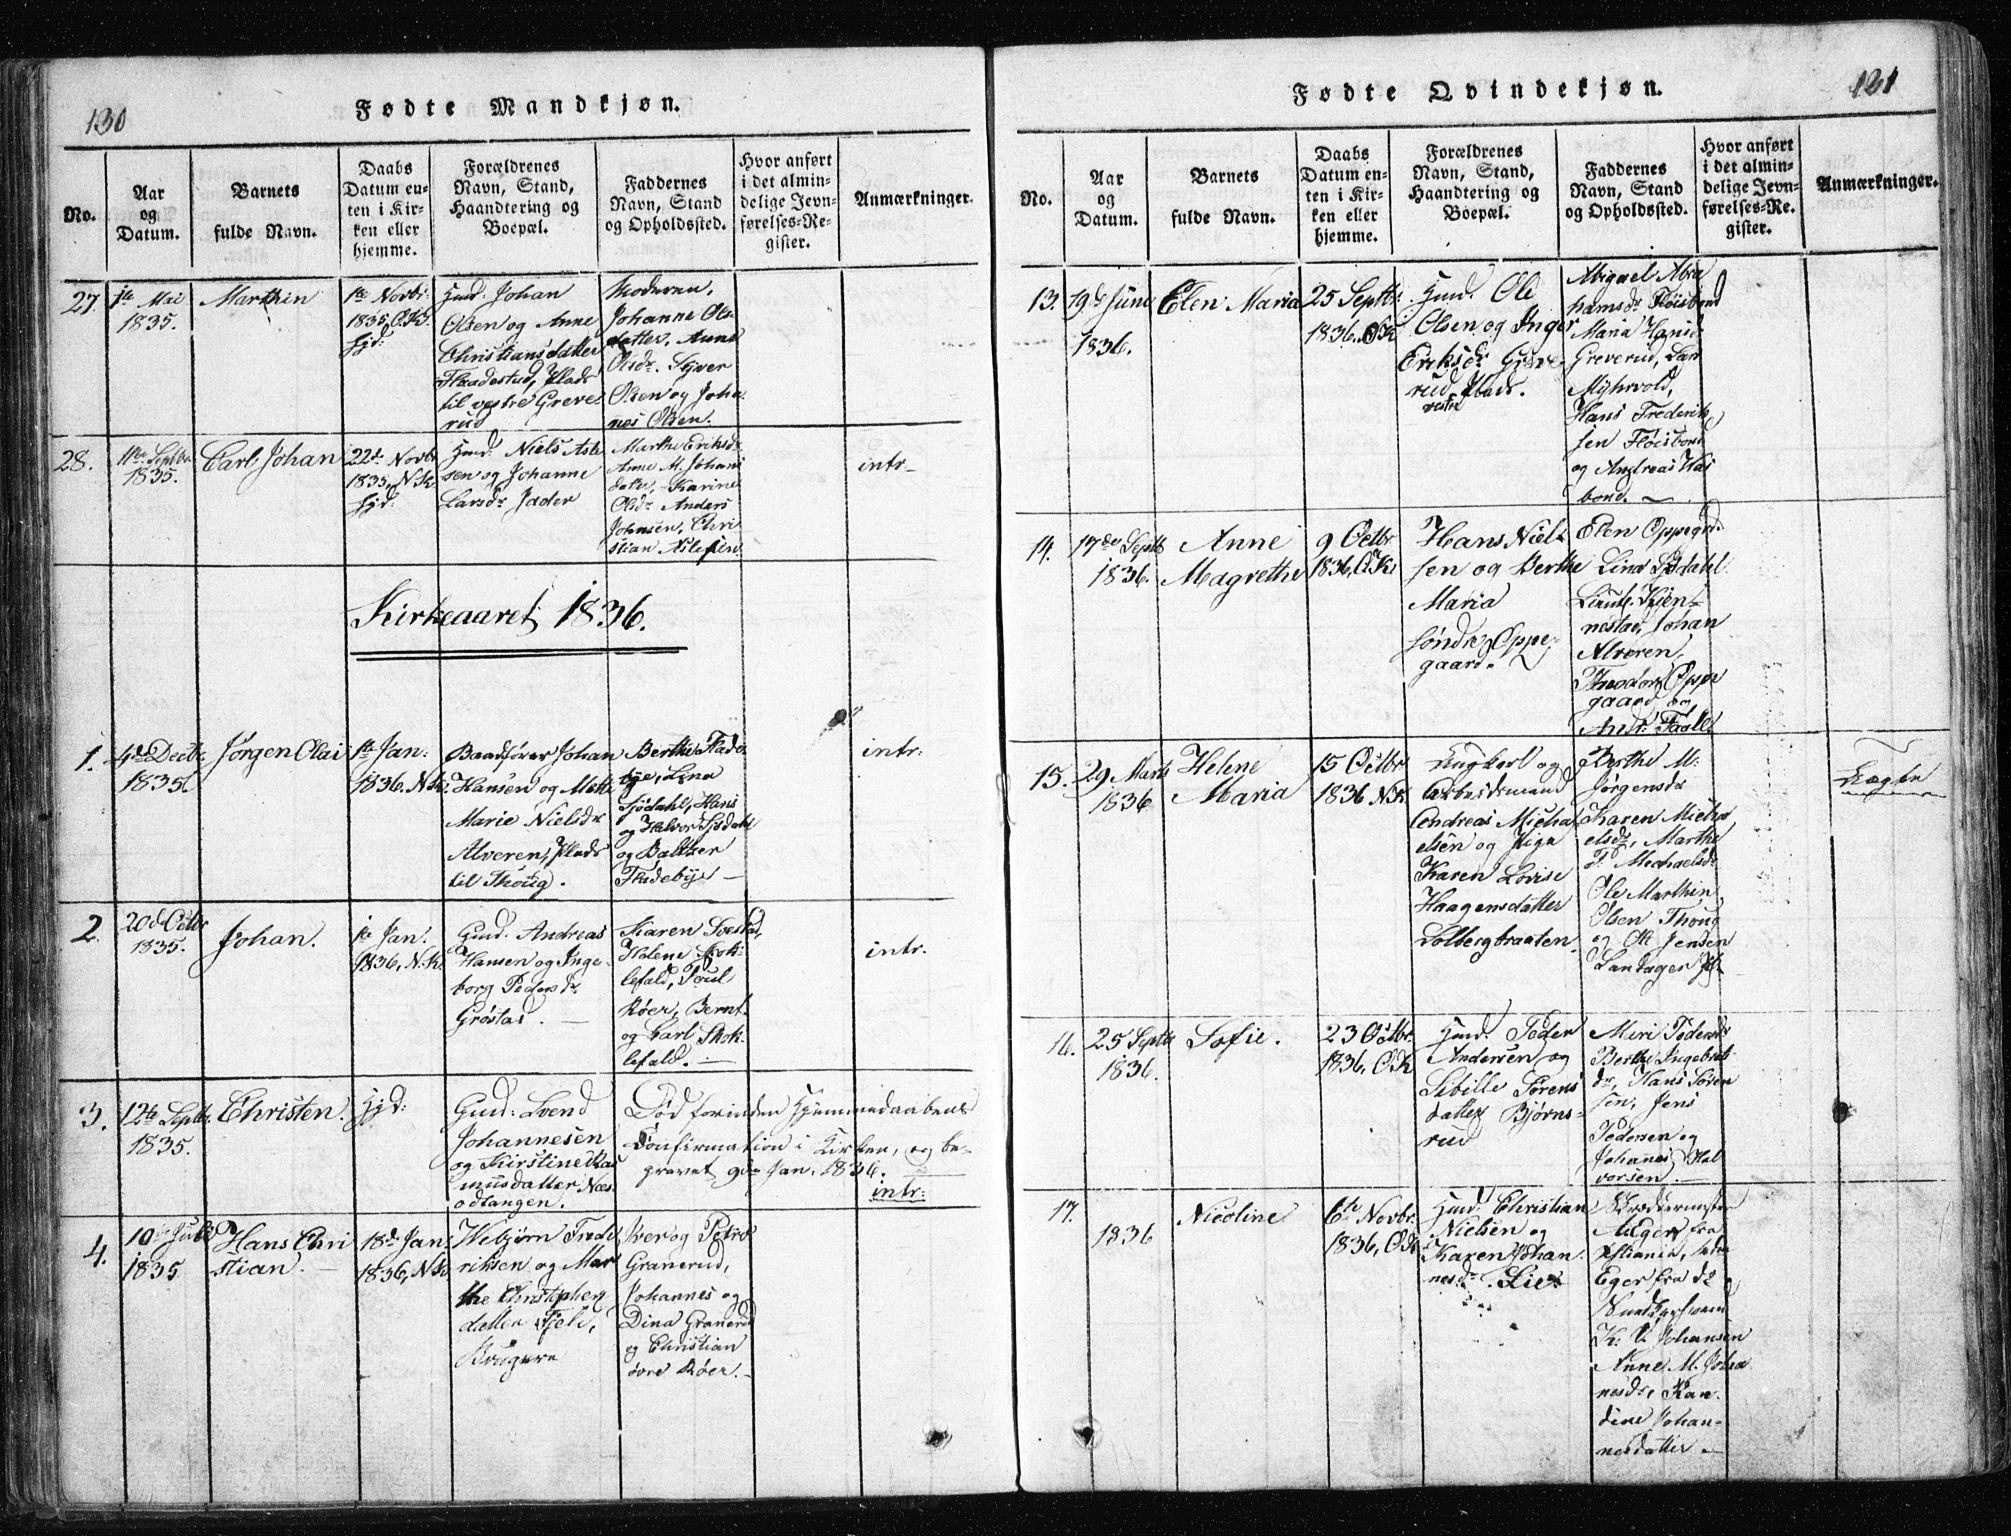 130
Fødte Mandkjøn.
No.
Aar
og
Datum.
Barnets
fulde Navn.
Daabs
Datum en-
ten i Kir-
ken eller
hjemme.
Forældrenes
Navn, Stand,
Haandtering og
Boepæl.
Faddernes
Navn, Stand
og Opholdssted.
Hvor anført
i det almin-
delige Jevn-
førelses-Re-
gister.
Anmærkninger.
27.
1te Mai
1835.
Marthin
1te Novbr.
1835, O.K.
Hjd:
Gmd. Johan
Olsen og Anne
Christiansdatter
Flaadestad, Plads
til vestre Greve-
rud
Moderen,
Johanne Ols-
datter, Anne
Olsdr. Syver
Olsen og Joha-
nes Olsen.
28.
11te Septbr.
1835.
Carl Johan
22de Novbr
1835, N.K.
Hjd:
Gmd. Niels Asle-
sen og Johanne
Larsdr Jader
Marthe Eriksdr
Anne M. Johans
datter, Karine
Olsdr Anders
Johnsen, Chri
stian Aslesen
intr-
Kirkeaaret 1836.
1.
4de Decbr.
1835
Jørgen Olai
1te Jan:
1836, N.K.
Baadfører Johan
Hansen og Mette
Marie Nielsdr
Alveren, Plads
til Thoug.
Berthe Flade-
bye, Lina
Sjødahl, Hans
og Halvor Sjødahl
og Baltzer
Fladebye -
intr:
2.
20de Octbr
1835.
Johan.
1te Jan.
1836, N.K.
Gmd. Andreas
Hansen og Inge-
borg Pedersdr.
Grøstad. -
Karen Toestad,
Helene Skok-
lefald, Poul
Røer, Bernt
og Carl Skok-
lefald. -
intr.
3.
12te Septbr.
1835.
Christen.
Hjd:
Gmd: Svend
Johannesen
og Kirstine Ras
musdatter Næs-
odtangen.
Død forinden Hjemmedaabens
Confirmation i Kirken, og be-
gravet 9de Jan. 1836.
intr:
4.
10de Juli
1835
Hans Chri
stian. -
18de Jan:
1836, N.K.
Webjørn Frede
riksen og Mar
the Christophers
datter Fjeld,
Brugere
Iver og Petro
Granerud,
Johannes og
Dina Granerud
og Christian
øvre Røer. -
121
Fødte Qvindekjøn.
No.
Aar
og
Datum.
Barnets
fulde Navn.
Daabs
Datum en-
ten i Kir-
ken eller
hjemme.
Forældrenes
Navn, Stand,
Haandtering og
Boepæl.
Faddernes
Navn, Stand
og Opholdssted.
Hvor anført
i det almin-
delige Jevn-
førelses-Re-
gister.
Anmærkninger.
13.
19de Juni
1836.
Elen Maria
25 Septbr.
1836. O.K
Gmd. Ole
Olsen og Inger
Eriksdr Greve-
rud, Plads.
vestre
Abigael Abra
hamsdr Fløisbond
Maria Hansd:
Greverud, Lars
Myhrvold,
Hans Frederik
sen Fløisbond
og Andreas Has
bond. -
14.
17de Septb
1836.
Anne
Magrethe
9 Octbr
1836, O.K.
Hans Niel-
sen og Berthe
Maria
søndre Oppe-
gaard.
Elen Oppegrd.
Lina Sjødahl
Lieut. Kien-
nestad, Johan
Alveren,
Theodor Oppe
gaard og
15.
29 Marts
1836
Helene
Maria
15 Octbr
1836 N.K.
Ungkarl og
Arbeidsmand
Andreas Micha
elsen og Pige
Karen Lovise
Haagensdatter
Solbergbraaten.
Berthe M:
Jørgensdr
Karen Micha
elsdr, Marthe
P. Michaelsdr
Ole Marthin
Olsen Thoug
og M Jensen
Landager
Uægte
16.
25 Septbr
1836.
Sofie.
23 Octbr.
1836, O.K
Gmd. Peder
Andersen og
Sibille Sørens
datter Bjørns-
rud
Mari Pedersdr
Berthe Ingebrets
dr, Hans Søren
sen, Jens
Pedersen og
Johanes Hal
vorsen. -
17.
1836
Nicoline
6te Novbr.
1836, O.K
Gmd. Christian
Nielsen og
Karen Johan
nesdr. Lie.
A. Eger fra
Eger fra do
K. V. Johansen
Anne M. Joha
nesdr, Kan-
dine Johan-
nesdatter -